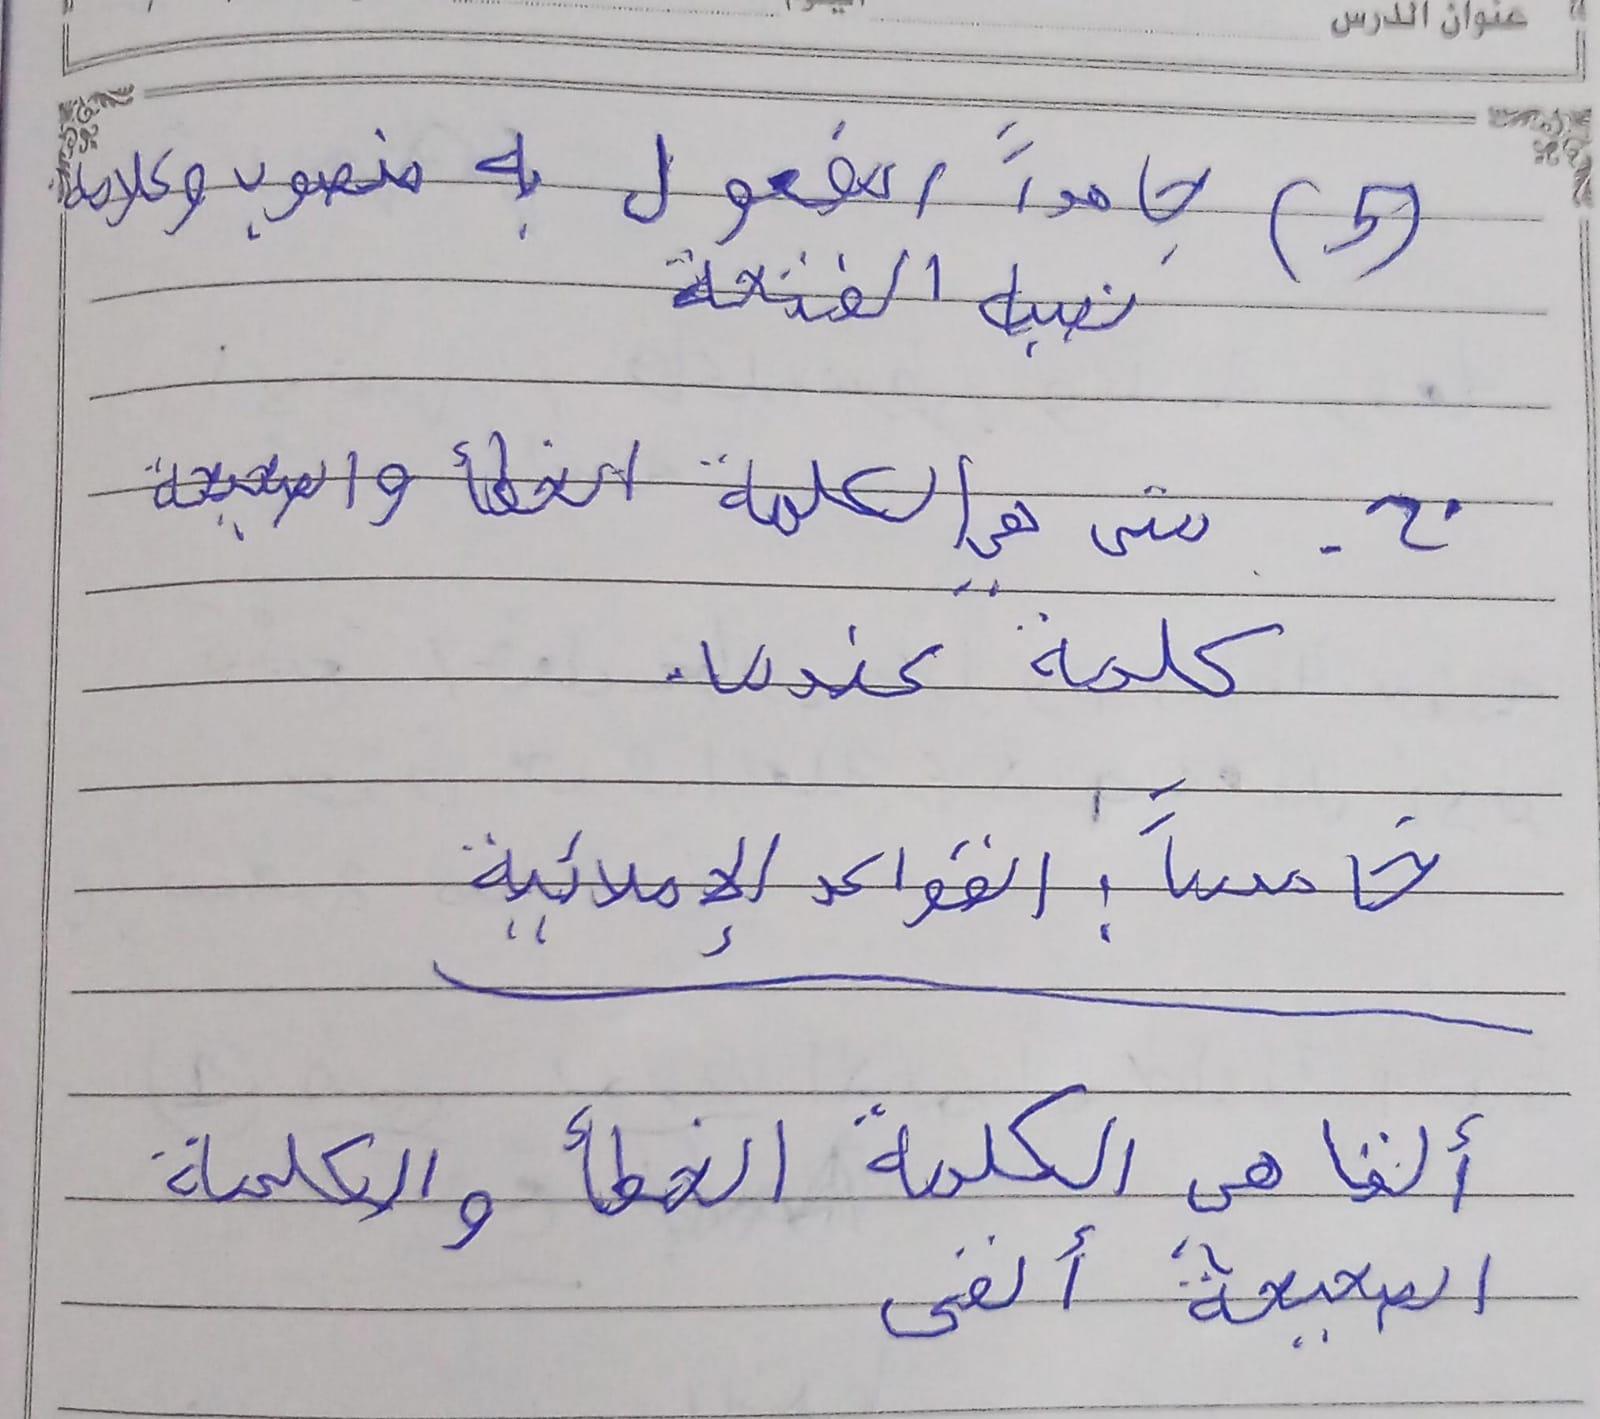 عنوان الدرس
(5) جامداً المفعول به منصوب وعلامة
نصبه الفتحة
ج- متى هي الكلمة الخطأ والصحيحة
كلمة عندما.
خامساً: القواعد الإملائية
ألفا هي الكلمة الخطأ والكلمة
الصحيحة ألفى